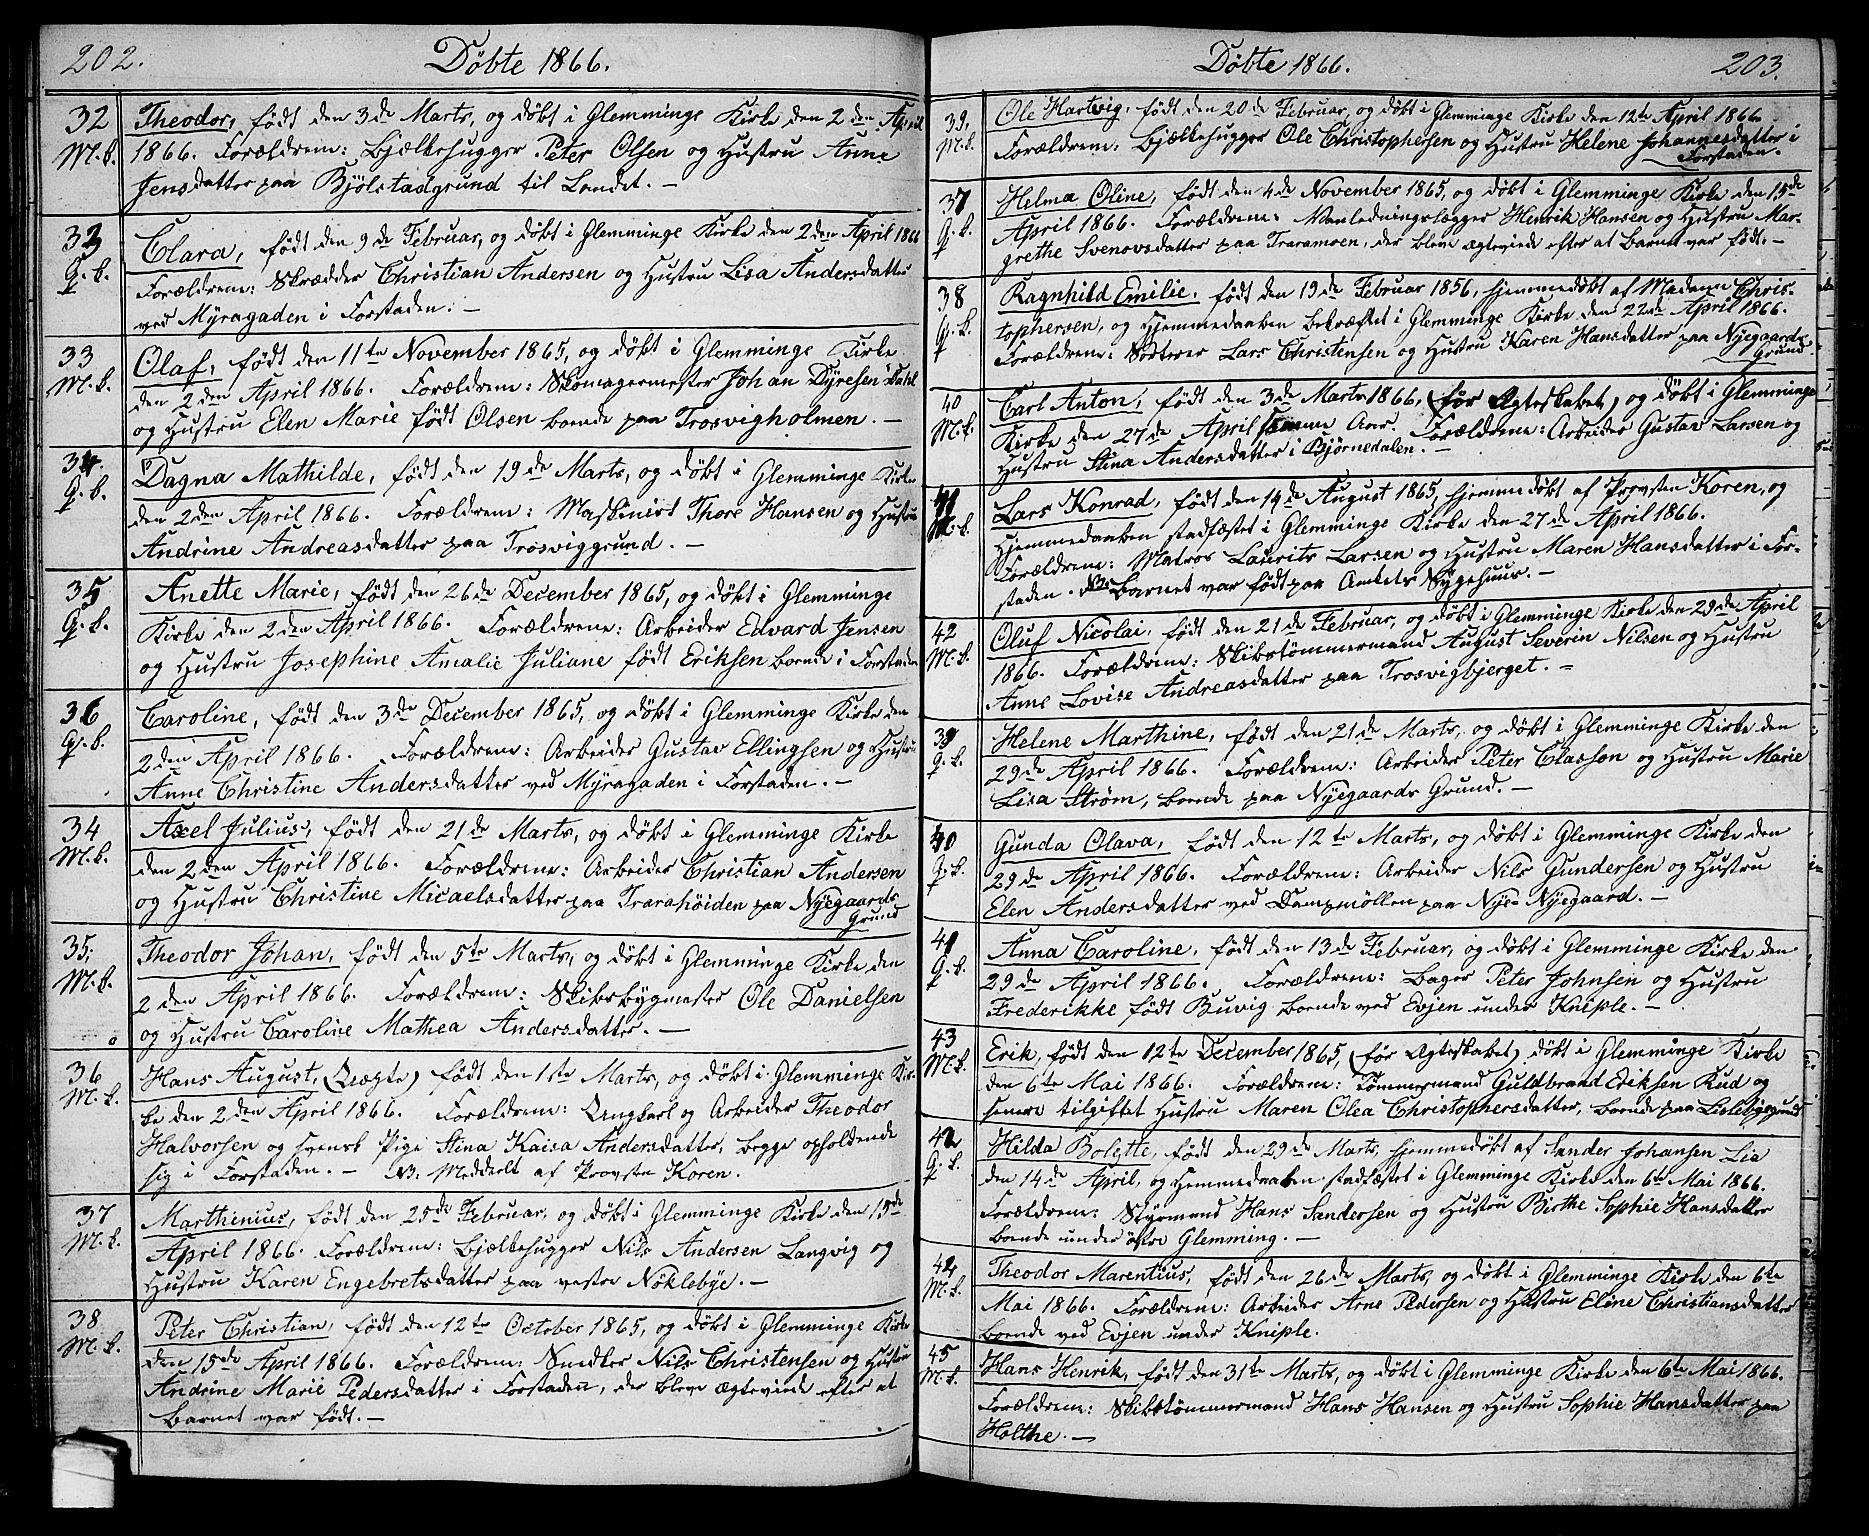 202.
Døbte 1866.
32
M.k.
Theodor, født den 3de Marts, og døbt i Glemminge Kirke den 2den April
1866. Forældrene: Bjælkehugger Peter Olsen og Hustru Anne
Jensdatter paa Bjölstadgrund til Landet. —
32
Q.k.
Clara, født den 9de Februar, og døbt i Glemminge Kirke den 2den April 1866
Forældrene: Skrædder Christian Andersen og Hustru Lisa Andersdatter
ved Myragaden i Forstaden. —
33
M.k.
Olaf, født den 11te November 1865, og døbt i Glemminge Kirke
den 2den April 1866. Forældrene: Skomagermester Johan Dyresen Dahl
og Hustru Elen Marie født Olsen boende paa Trosvigholmen. —
34.
Q.k.
Dagna Mathilde, født den 19de Marts, og døbt i Glemminge Kirke
den 2den April 1866. Forældrene: Maskinist Thore Hansen og Hustru
Andrine Andreasdatter paa Trosviggrund. —
35
Q.k.
Anette Marie, født den 26de December 1865, og døbt i Glemminge
Kirke den 2den April 1866. Forældrene: Arbeider Edvard Jensen
og Hustru Josephine Amalie Juliane født Eriksen boende i Forstaden
36
Q.k.
Caroline, født den 3de December 1865, og døbt i Glemminge Kirke den
2den April 1866. Forældrene: Arbeider Gustav Ellingsen og Hustru
Anne Christine Andersdatter ved Myragaden i Forstaden. —
34
M.k.
Axel Julius, født den 21de Marts, og døbt i Glemminge Kirke
den 2den April 1866. Forældrene: Arbeider Christian Andersen
og Hustru Christine Micaelsdatter paa Trarahöiden paa Nyegaards
Grund
35.
M.k.
Theodor Johan, født den 5te Marts, og døbt i Glemminge Kirke den
2den April 1866. Forældrene: Skibsbygmester Ole Danielsen
og Hustru Caroline Mathea Andersdatter. —
36
M.k.
Hans August, (Uægte) født den 1ste Marts, og døbt i Glemminge Kir-
ke den 2den April 1866. Forældrene: Ungkarl og Arbeider Theodor
Halvorsen og svensk Pige Stina Kaisa Andersdatter, begge opholdende
sig i Forstaden. — NB. Meddelt af Provsten Koren.
37
M.k.
Marthinius, født den 25de Februar, og døbt i Glemminge Kirke den 15de
April 1866. Forældrene: Bjælkehugger Nils Andersen Langvig og
Hustru Karen Engebretsdatter paa vestre Nöklebye. —
38
M.k.
Peter Christian, født den 12te October 1865, og døbt i Glemminge Kirke
den 15de April 1866. Forældrene: Smedker Nils Christensen og Hustru
Andrine Marie Pedersdatter i Forstaden, der bleve ægteviede efter at
Barnet var født. —
Døbte 1866.
203.
39.
M.k.
Ole Hartvig, født den 20de Februar, og døbt i Glemminge Kirke den 12te April 1866
Forældrene: Bjælkehugger Ole Christophersen og Hustru Helene Johannesdatter i
Forstaden.
37
Q.k.
Helma Oline, født den 4de November 1865, og døbt i Glemminge Kirke den 15de
April 1866. Forældrene: Vanledningslægger Henrik Hansen og Hustru Mar-
grethe Svenovsdatter paa Traramoen, der bleve ægteviede efter at Barnet var født. —
38
Q.k.
Ragnhild Emilie, født den 19de Februar 1856, hjemmedøbt af Madame Chris-
tophersen, og Hjemmedaaben bekræftet i Glemminge Kirke den 22de April 1866.
Forældrene: Sorterer Lars Christensen og Hustru Karen Hansdatter paa Nyegaards
Grund
40
M.k.
Carl Anton, født den 3de Marts 1866, (før Ægteskabet) og døbt i Glemminge
Kirke den 27de April samme Aar. Forældrene: Arbeider Gustav Larsen og
Hustru Stina Andersdatter i Bjørnedalen. —
41
M.k.
Lars Konrad, født den 14de August 1865, hjemmedøbt af Provsten Koren, og
Hjemmedaaben stadfæstet i Glemminge Kirke den 27de April 1866.
Forældrene: Matros Laurits Larsen og Hustru Maren Hansdatter i For-
staden. NB. Barnet var født paa Amtets Sygehuus. —
42
M.k.
Oluf Nicolai, født den 21de Februar, og døbt i Glemminge Kirke den 29de April
1866. Forældrene: Skibstömmermand August Severin Nilsen og Hustru
Anne Lovise Andreasdatter paa Trosvigbjerget. —
39
Q.k.
Helene Marthine, født den 21de Marts, og døbt i Glemminge Kirke den
29de April 1866. Forældrene: Arbeider Peter Classon og Hustru Marie
Lisa Strøm, boende paa Nyegaards Grund. —
40
Q.k.
Gunda Olava, født den 12te Marts, og døbt i Glemminge Kirke den
29de April 1866. Forældrene: Arbeider Nils Gundersen og Hustru
Elen Andersdatter ved Dampmöllen paa Nye Nyegaard. —
41
Q.k.
Anna Caroline, født den 13de Februar, og døbt i Glemminge Kirke den
29de April 1866. Forældrene: Bager Peter Johnsen og Hustru
Frederikke født Buvig boende ved Evjen under Kniple. —
43
M.k.
Erik, født den 12te December 1865, (før Ægteskabet) døbt i Glemminge Kirke
den 6te Mai 1866. Forældrene: Tømmermand Guldbrand Eriksen Rud og
senere tilgiftet Hustru Maren Olea Christophersdatter, boende paa Lislebygrund
42
Q.k.
Hilda Bolette, født den 29de Marts, hjemmedøbt af Sander Johansen Lia
den 14de April, og Hemmedaaben stadfæstet i Glemminge Kirke den 6te Mai 1866.
Forældrene: Styrmand Hans Sandersen og Hustru Birthe Sophie Hansdatter
boende under østre Glemming. —
44
M.k.
Theodor Marentius, født den 26de Marts, og døbt i Glemminge Kirke den 6te
Mai 1866. Forældrene: Arbeider Arne Pedersen og Hustru Eline Christiansdatter
boende ved Evjen under Kniple.
45
M.k.
Hans Henrik, født den 31te Marts, og døbt i Glemminge Kirke den 6te Mai 1866.
Forældrene: Skibstömmermand Hans Hansen og Hustru Sophie Hansdatter paa
Holthe. —